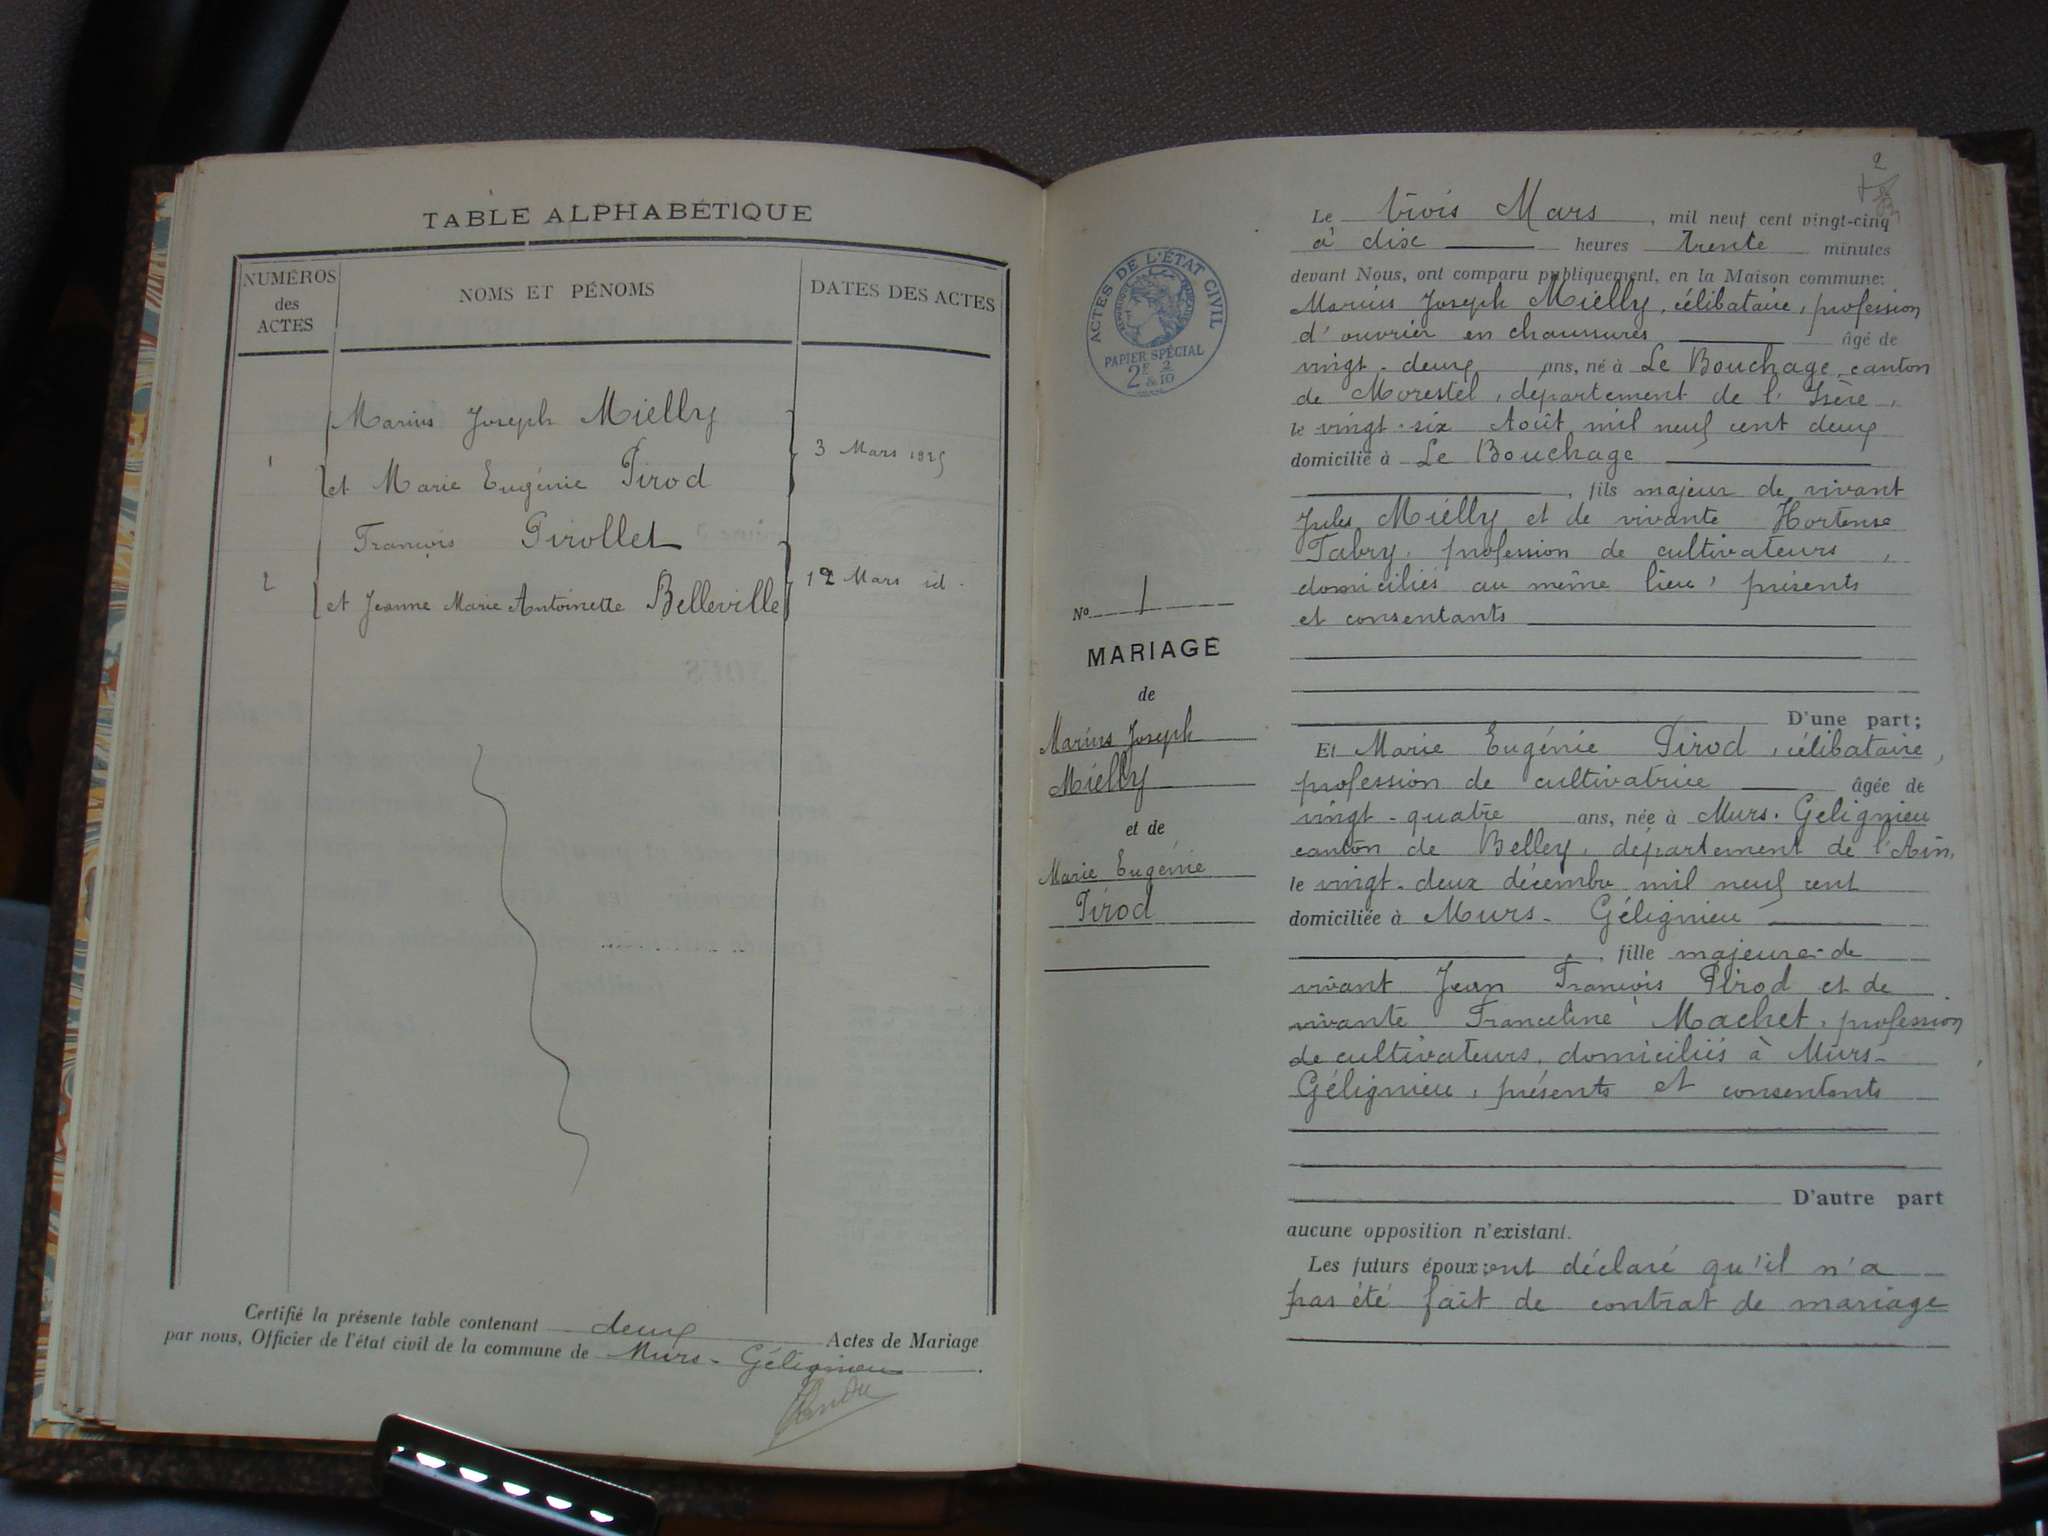 TABLE ALPHABÉTIQUE
NUMÉROS
des
ACTES
NOMS ET PÉNOMS
DATES DES ACTES
Marius Joseph Mielly
1
3 Mars 1925
et Marie Eugénie Pirod
François Pirollet
2
12 Mars id.
et Jeanne Marie Antoinette Belleville
Certifié la présente table contenant deux Actes de Mariage
par nous, Officier de l'état civil de la commune de Murs-Gélignieu.
2
Le trois Mars, mil neuf cent vingt-cinq
à dix heures trente minutes
devant Nous, ont comparu publiquement, en la Maison commune:
Marius Joseph Mielly, célibataire, profession
d'ouvrier en chaussures âgé de
vingt-deux ans, né à Le Bouchage, canton
de Morestel, département de l'Isère,
le vingt-six Août mil neuf cent deux
domicilié à Le Bouchage
, fils majeur de vivant
Jules Mielly et de vivante Hortense
Fabry, profession de cultivateurs,
domiciliés au même lieu, présents
et consentants
D'une part;
Et Marie Eugénie Pirod, célibataire,
profession de cultivatrice âgée de
vingt-quatre ans, née à Murs-Gelignieu
canton de Belley, département de l'Ain,
le vingt-deux décembre mil neuf cent
domiciliée à Murs-Gélignieu
, fille majeure de
vivant Jean François Pirod et de
vivante Franceline Machet, profession
de cultivateurs, domiciliés à Murs-
Gélignieu, présents et consentants
D'autre part
aucune opposition n'existant.
Les futurs époux ont déclaré qu'il n'a
pas été fait de contrat de mariage
ACTES DE L'ÉTAT CIVIL
PAPIER SPÉCIAL
2F &2/10
No 1
MARIAGE
de
Marius Joseph
Mielly
et de
Marie Eugénie
Pirod